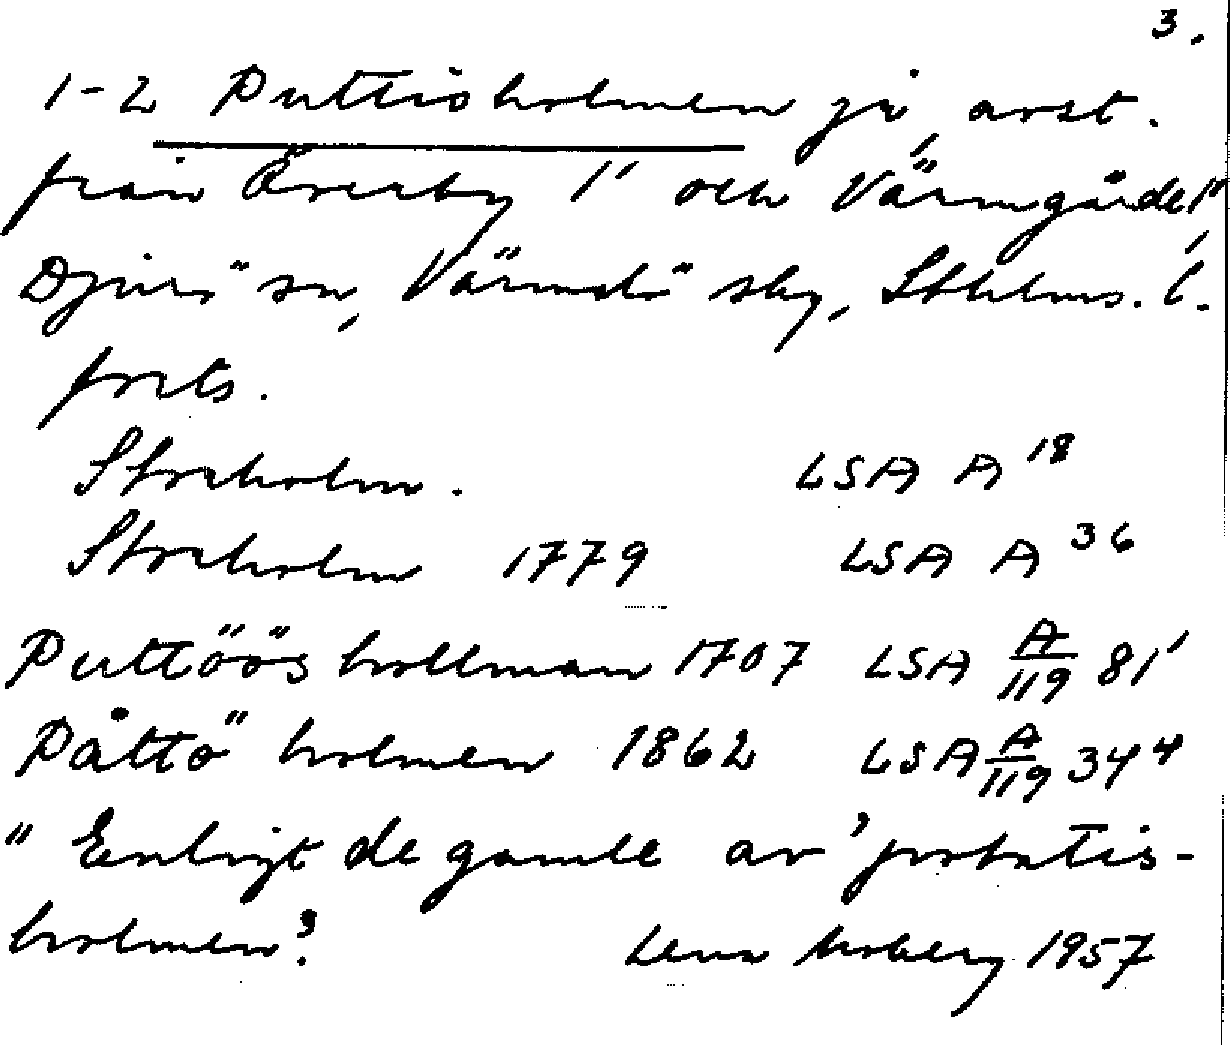 3.
1-2 Puttisholmen jr, avst.
från Överby 1¹ och Värmgårde 1¹¹,
Djurö sn, Värmdö sky, Sthlms. l.
forts.
Storholm. LSA A 18
Storholm 1779 LSA A 36
Puttöös hollman 1707 LSA A/119 81¹
Påttö holmen 1862 LSA A/119 34⁴
" Enligt de gamle av 'potatis-
holmen? Lena Moberg 1957